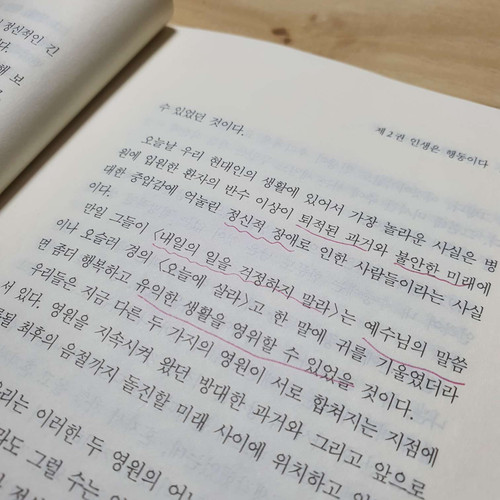 정신적인 긴
다.
해 보
제 2 권 인생은 행동이다
수 있었던 것이다.
오늘날 우리 현대인의 생활에 있어서 가장 놀라운 사실은 병
원에 입원한 환자의 반수 이상이 퇴적된 과거와 불안한 미래에
대한 중압감에 억눌린 정신적 장애로 인한 사람들이라는 사실
이다.
만일 그들이 〈내일의 일을 걱정하지 말라〉는 예수님의 말씀
이나 오슬러 경의 〈오늘에 살라〉고 한 말에 귀를 기울였더라
면 좀더 행복하고 유의한 생활을 영위할 수 있었을 것이다.
우리들은 지금 다른 두 가지의 영원이 서로 합쳐지는 지점에
서 있다. 영원을 지속시켜 왔던 방대한 과거와 그리고 앞으로
최후의 음절까지 돌진할 미래 사이에 위치하고
이러한 두 영원의
그럴 수는